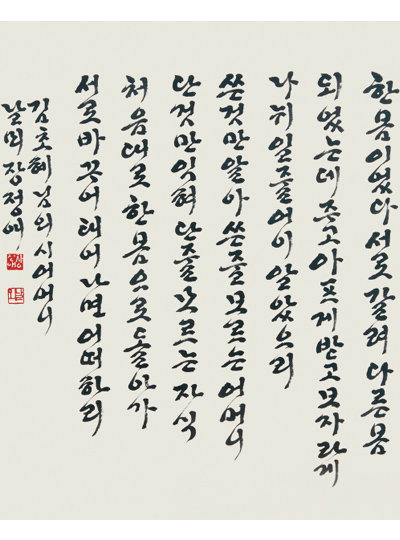 한몸이었다서로갈려다른몸
되었는데주고아프게받고모자라게
나뉘일줄어이알았으리
쓴것만알아쓴줄모르는어머니
단것만익혀단줄모르는자식
처음대로한몸으로돌아가
서로바꾸어태어나면어떠하리
김초혜님의시어머니
날뫼장정애